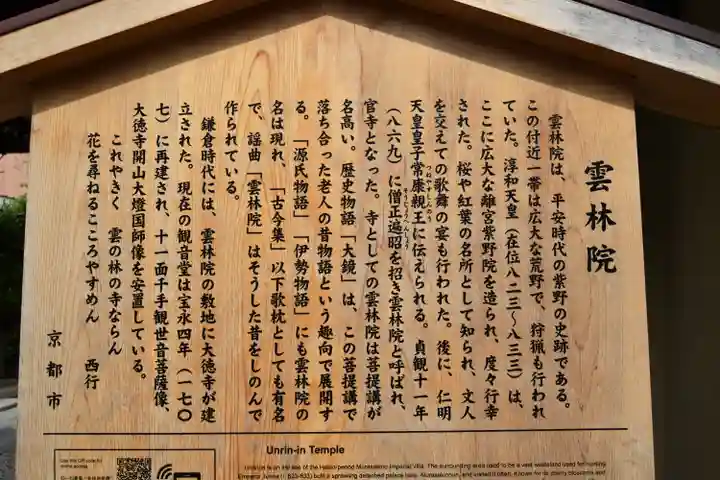 雲林院
雲林院は、平安時代の紫野の史跡である。
この付近一帯は広大な荒野で、狩猟も行われ
ていた。淳和天皇(在位八二三〜八三三)は、
ここに広大な離宮紫野院を造られ、度々行幸
された。桜や紅葉の名所として知られ、文人
を交えての歌舞の宴も行われた。後に、仁明
天皇皇子常康親王に伝えられる。貞観十一年
(八六九)に僧正遍昭を招き雲林院と呼ばれ、
官寺となった。寺としての雲林院は菩提講が
名高い。歴史物語「大鏡」は、この菩提講で
落ち合った老人の昔物語という趣向で展開す
る。「源氏物語」「伊勢物語」にも雲林院の
名は現れ、「古今集」以下歌枕としても有名
で、謡曲「雲林院」はそうした昔をしのんで
作られている。
鎌倉時代には、雲林院の敷地に大徳寺が建
立された。現在の観音堂は宝永四年(一七〇
七)に再建され、十一面千手観世音菩薩像、
大徳寺開山大燈国師像を安置している。
これやきく 雲の林の寺ならん
花を尋ねるこころやすめん 西行
京都市
Unrin-in Temple